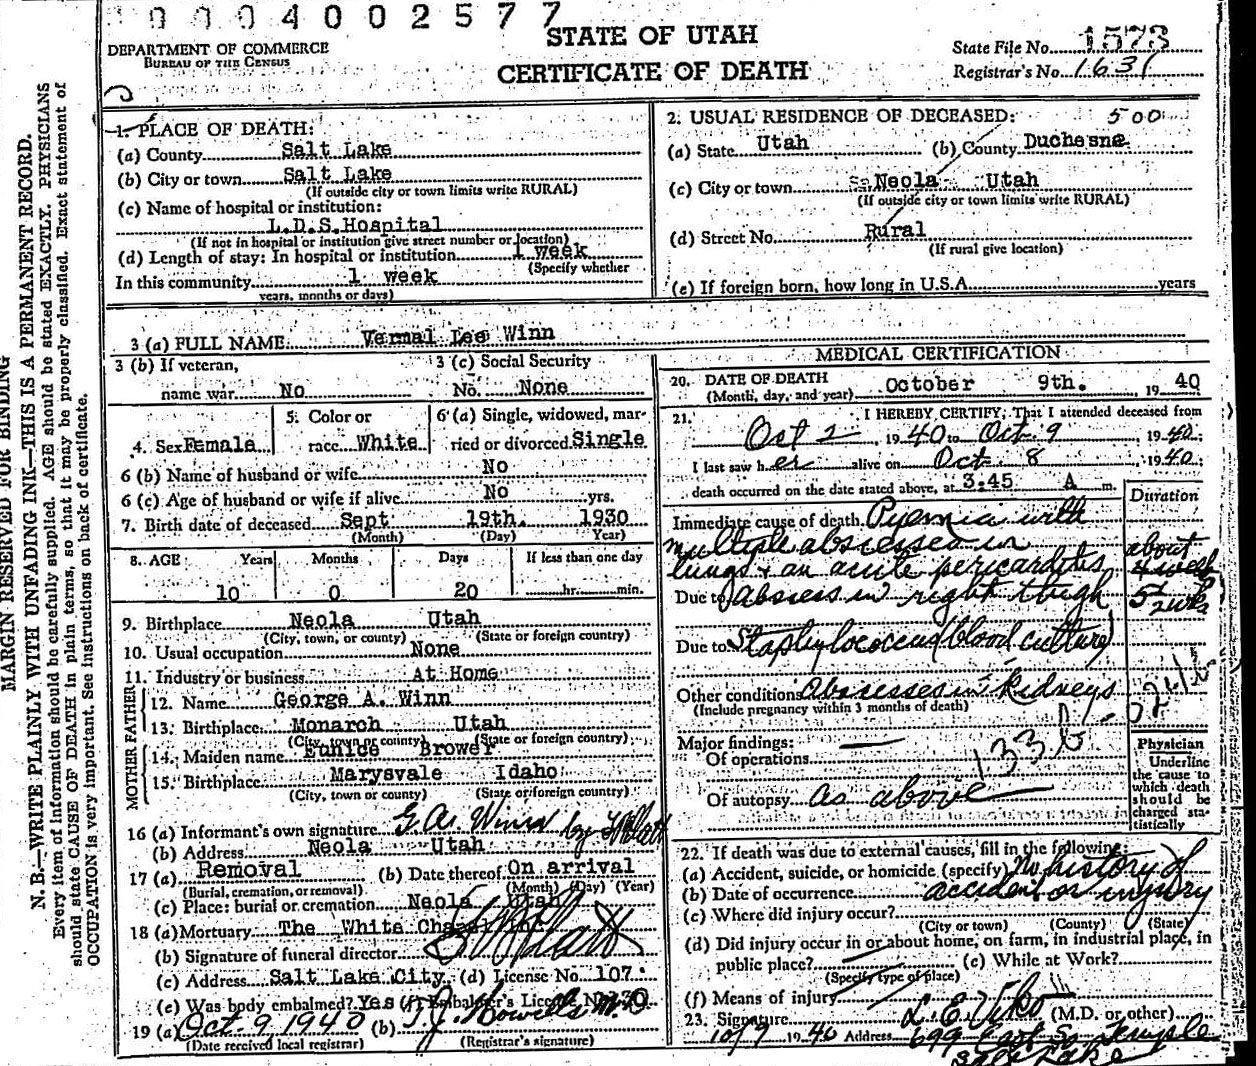 0004002577
STATE OF UTAH
CERTIFICATE OF DEATH
DEPARTMENT OF COMMERCE
BUREAU OF THE CENSUS
State File No. 1573
Registrar's No. 1631
MARGIN RESERVED FOR BINDING
N. B.—WRITE PLAINLY WITH UNFADING INK—THIS IS A PERMANENT RECORD.
Every item of information should be carefully supplied. AGE should be stated EXACTLY. PHYSICIANS
should state CAUSE OF DEATH in plain terms, so that it may be properly classified. Exact statement of
OCCUPATION is very important. See instructions on back of certificate.
1. PLACE OF DEATH:
(a) County Salt Lake
(b) City or town Salt Lake
(If outside city or town limits write RURAL)
(c) Name of hospital or institution:
L.D.S. Hospital
(If not in hospital or institution give street number or location)
(d) Length of stay: In hospital or institution 1 week
(Specify whether
In this community 1 week
years, months or days)
2. USUAL RESIDENCE OF DECEASED: 500
(a) State Utah (b) County Duchesne
(c) City or town Neola Utah
(If outside city or town limits write RURAL)
(d) Street No. Rural
(If rural give location)
(e) If foreign born, how long in U.S.A. years
3 (a) FULL NAME Vermal Lee Winn
3 (b) If veteran,
name war No
3 (c) Social Security
No. None
4. Sex Female
5. Color or
race White
6 (a) Single, widowed, mar-
ried or divorced Single
6 (b) Name of husband or wife No
6 (c) Age of husband or wife if alive No yrs.
7. Birth date of deceased Sept 19th. 1930
(Month) (Day) Year)
8. AGE Years Months Days If less than one day
10 0 20 hr. min.
9. Birthplace Neola Utah
(City, town, or county) (State or foreign country)
10. Usual occupation None
11. Industry or business At Home
FATHER
12. Name George A. Winn
13. Birthplace Monarch Utah
(City, town or county) (State or foreign country)
MOTHER
14. Maiden name Eunice Brower
15. Birthplace Marysvale Idaho
(City, town or county) (State or foreign country)
16 (a) Informant's own signature G. A. Winn by
(b) Address Neola Utah
17 (a) Removal (b) Date thereof On arrival
(Burial, cremation, or removal) (Month) (Day) (Year)
(c) Place: burial or cremation Neola Utah
18 (a) Mortuary The White Chapel Inc
(b) Signature of funeral director
(c) Address Salt Lake City (d) License No. 107
(e) Was body embalmed? Yes (f) Embalmer's License No.
19 (a) Oct. 9 1940 (b) Howells M.D
(Date received local registrar) (Registrar's signature)
MEDICAL CERTIFICATION
20. DATE OF DEATH
(Month, day, and year) October 9th. 1940
21. I HEREBY CERTIFY, That I attended deceased from
Oct 2 1940 to Oct 9, 1940;
I last saw her alive on Oct. 8, 1940;
death occurred on the date stated above, at 3:45 A m.
Duration
Immediate cause of death Pyemia with
multiple abscesses in
lungs + an acute pericarditis
about
4 week
Due to Abscess in right thigh
Due to Staphylococcus (blood culture)
Other conditions Abscesses in Kidneys
(Include pregnancy within 3 months of death)
Major findings:
Of operations —
133b
Of autopsy as above
Physician
Underline
the cause to
which death
should be
charged sta-
tistically
22. If death was due to external causes, fill in the following:
(a) Accident, suicide, or homicide (specify) No history of
(b) Date of occurrence accident or injury
(c) Where did injury occur?
(City or town) (County) (State)
(d) Did injury occur in or about home, on farm, in industrial place, in
public place? (e) While at Work?
(Specify type of place)
(f) Means of injury
23. Signature L. E. Viko (M.D. or other)
10/9 1940 Address 699 East So. Temple
Salt Lake